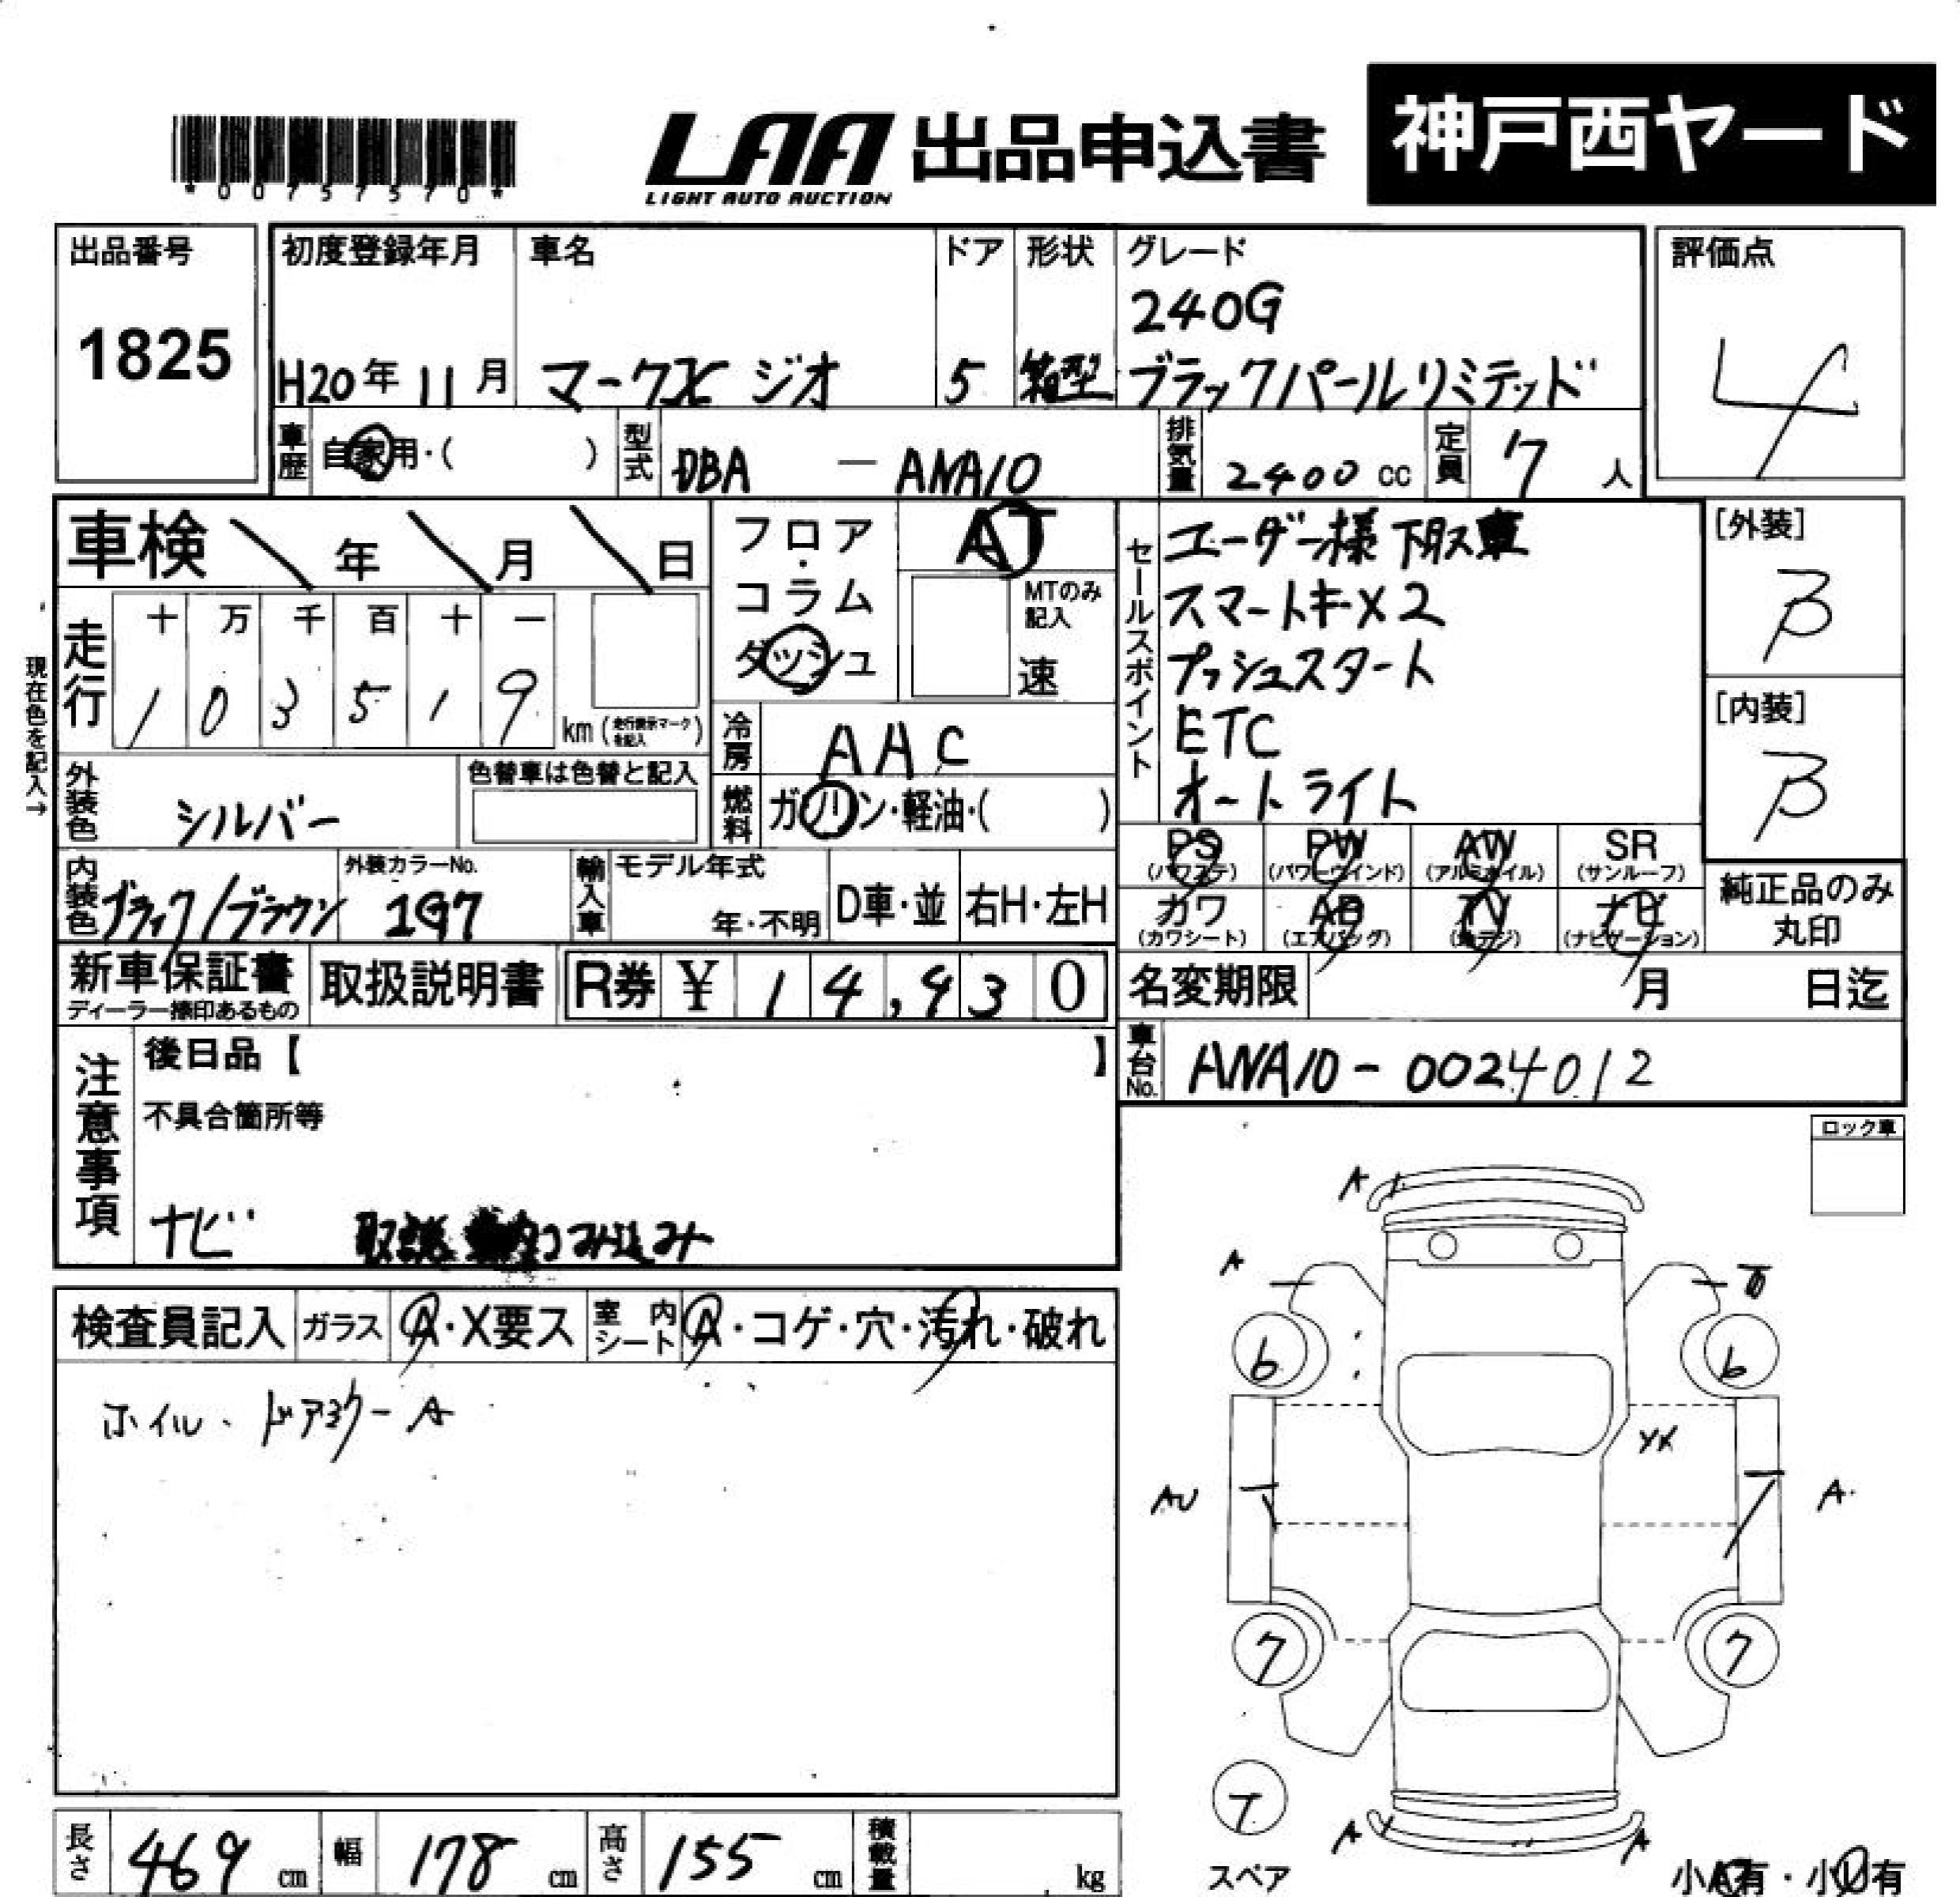 *00757570*
LAA 出品申込書 神戸西ヤード
LIGHT AUTO AUCTION
出品番号 初度登録年月 車名 ドア 形状 グレード 評価点
1825
240G
H20年11月 マークX ジオ 5 箱型 ブラックパールリミテッド 4
車歴 自家用・( ) 型式 DBA — ANA10 排気量 2400cc 定員 7人
車検 年 月 日
フロア・コラム ダッシュ AT
MTのみ記入 速
セールスポイント
ユーザー様下取車
スマートキーX2
プッシュスタート
ETC
オートライト
[外装]
B
[内装]
B
現在色を記入→
走行 十 万 千 百 十 一
1 0 3 5 1 9 km (走行表示マークを記入)
冷房 AAC
外装色 シルバー 色替車は色替と記入
燃料 ガソリン・軽油・( )
PS PW AW SR
(パワステ) (パワーウインド) (アルミホイル) (サンルーフ)
カワ AB TV ナビ
(カワシート) (エアバッグ) (地デジ) (ナビゲーション)
純正品のみ
丸印
内装色 ブラック/ブラウン 外装カラーNo. 1G7 輸入車 モデル年式 年・不明 D車・並 右H・左H
新車保証書 取扱説明書 R券 ¥ 14,430
ディーラー捺印あるもの
名変期限 月 日迄
車台No. ANA10-0024012
注意事項
後日品【 】
不具合箇所等
ナビ 取説
ロック車
検査員記入 ガラス A・X要ス 室内シート A・コゲ・穴・汚れ・破れ
ホイル、ドアミラーA
A
A
6 6
AU
A
7 7
T
スペア
A A
小A有・小U有
長さ 469 cm 幅 178 cm 高さ 155 cm 積載量 kg